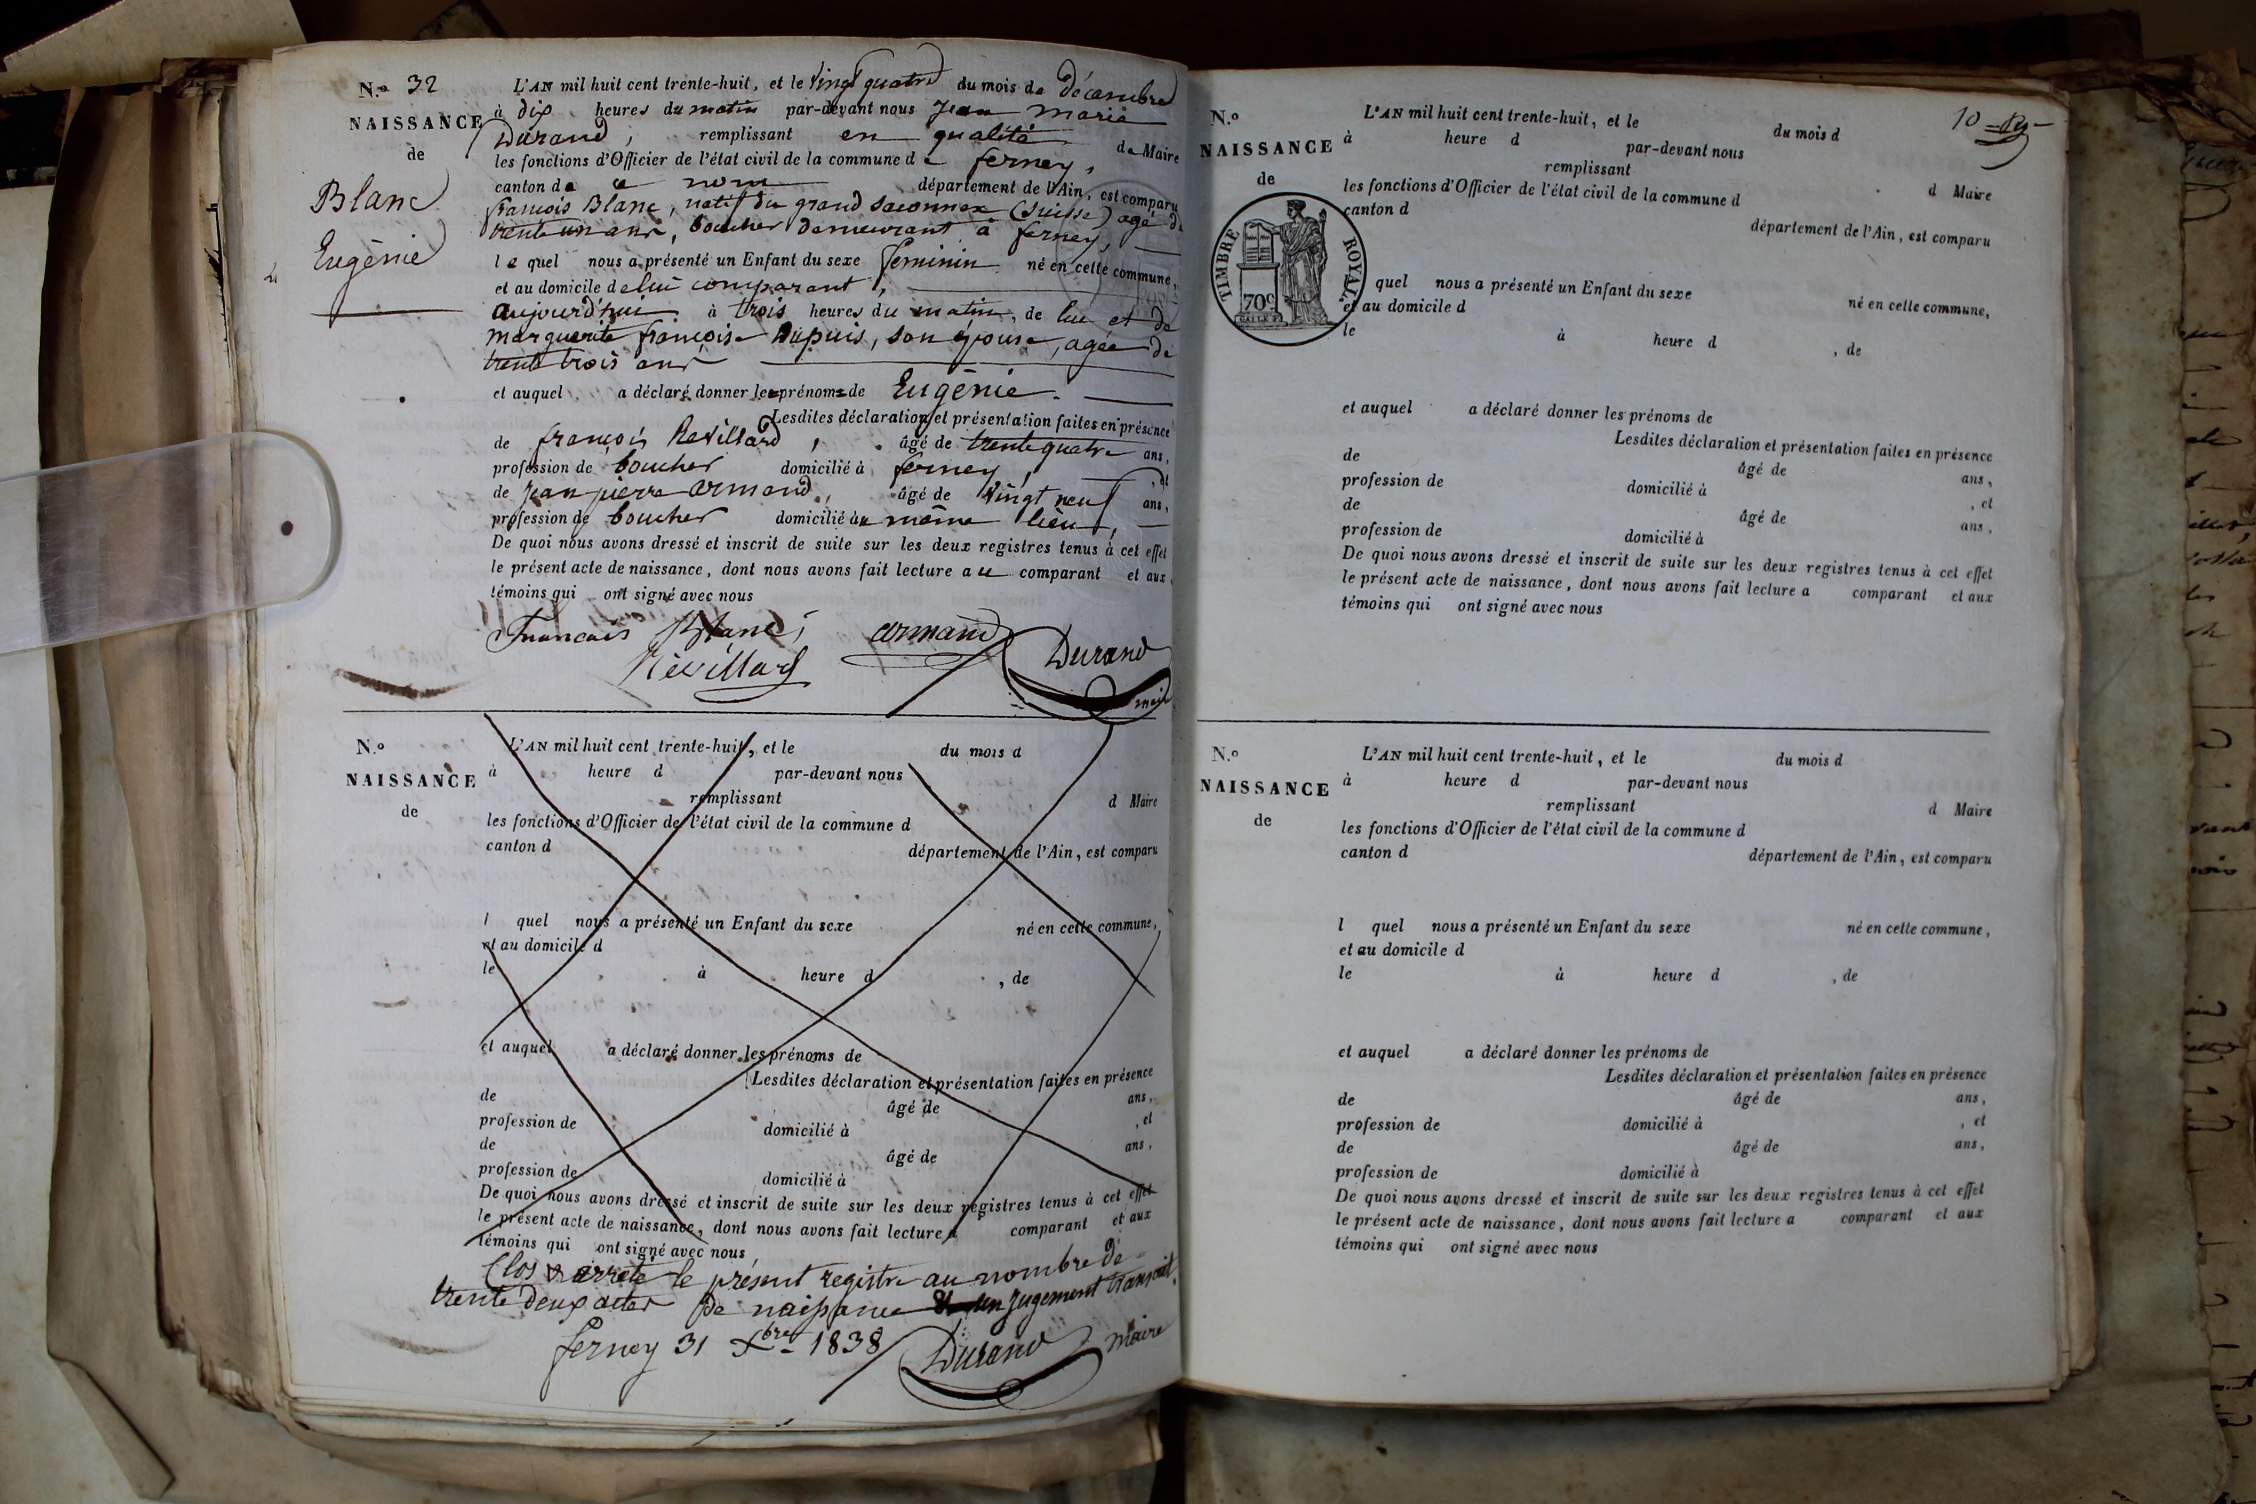 N.º 32
NAISSANCE
de
Blanc
Eugènie
L'AN mil huit cent trente-huit, et le vingt quatre du mois de décembre
à dix heures du matin par-devant nous jean marie
Durand, remplissant en qualité de Maire
les fonctions d'Officier de l'état civil de la commune de ferney,
canton de ce nom département de l'Ain, est comparu
françois Blanc, natif du grand saconnex (suisse) agé de
trente un ans, boucher demeurant à ferney,
le quel nous a présenté un Enfant du sexe feminin né en cette commune,
et au domicile de lui comparant,
aujourd'hui à trois heures du matin, de lui et de
marguerite françoise Dupuis, son épouse, agée de
trente trois ans
et auquel a déclaré donner les prénoms de Eugènie.
Lesdites déclaration et présentation faites en présence
de françois Revillard, âgé de trente quatre ans,
profession de boucher domicilié à ferney, , et
de jean pierre armand, âgé de vingt neuf ans,
profession de boucher domicilié au même lieu,
De quoi nous avons dressé et inscrit de suite sur les deux registres tenus à cet effet
le présent acte de naissance, dont nous avons fait lecture au comparant et aux
témoins qui ont signé avec nous
Francois Blanc, armand
Révillard Durand
maire
N.º
NAISSANCE
de
L'AN mil huit cent trente-huit, et le du mois d
à heure d par-devant nous
remplissant d Maire
les fonctions d'Officier de l'état civil de la commune d
canton d département de l'Ain, est comparu
l quel nous a présenté un Enfant du sexe né en cette commune,
et au domicile d
le à heure d , de
et auquel a déclaré donner les prénoms de
Lesdites déclaration et présentation faites en présence
de âgé de ans,
profession de domicilié à , et
de âgé de ans,
profession de domicilié à
De quoi nous avons dressé et inscrit de suite sur les deux registres tenus à cet effet
le présent acte de naissance, dont nous avons fait lecture a comparant et aux
témoins qui ont signé avec nous
Clos & arrêté le présent registre au nombre de
trente deux actes de naissance & un jugement transcrit.
ferney 31 Xbre 1838 Durand maire
10
N.º
NAISSANCE
de
TIMBRE ROYAL.
70c
L'AN mil huit cent trente-huit, et le du mois d
à heure d par-devant nous
remplissant d Maire
les fonctions d'Officier de l'état civil de la commune d
canton d département de l'Ain, est comparu
quel nous a présenté un Enfant du sexe né en cette commune,
et au domicile d
le à heure d , de
et auquel a déclaré donner les prénoms de
Lesdites déclaration et présentation faites en présence
de âgé de ans,
profession de domicilié à , et
de âgé de ans,
profession de domicilié à
De quoi nous avons dressé et inscrit de suite sur les deux registres tenus à cet effet
le présent acte de naissance, dont nous avons fait lecture a comparant et aux
témoins qui ont signé avec nous
N.º
NAISSANCE
de
L'AN mil huit cent trente-huit, et le du mois d
à heure d par-devant nous
remplissant d Maire
les fonctions d'Officier de l'état civil de la commune d
canton d département de l'Ain, est comparu
l quel nous a présenté un Enfant du sexe né en cette commune,
et au domicile d
le à heure d , de
et auquel a déclaré donner les prénoms de
Lesdites déclaration et présentation faites en présence
de âgé de ans,
profession de domicilié à , et
de âgé de ans,
profession de domicilié à
De quoi nous avons dressé et inscrit de suite sur les deux registres tenus à cet effet
le présent acte de naissance, dont nous avons fait lecture a comparant et aux
témoins qui ont signé avec nous